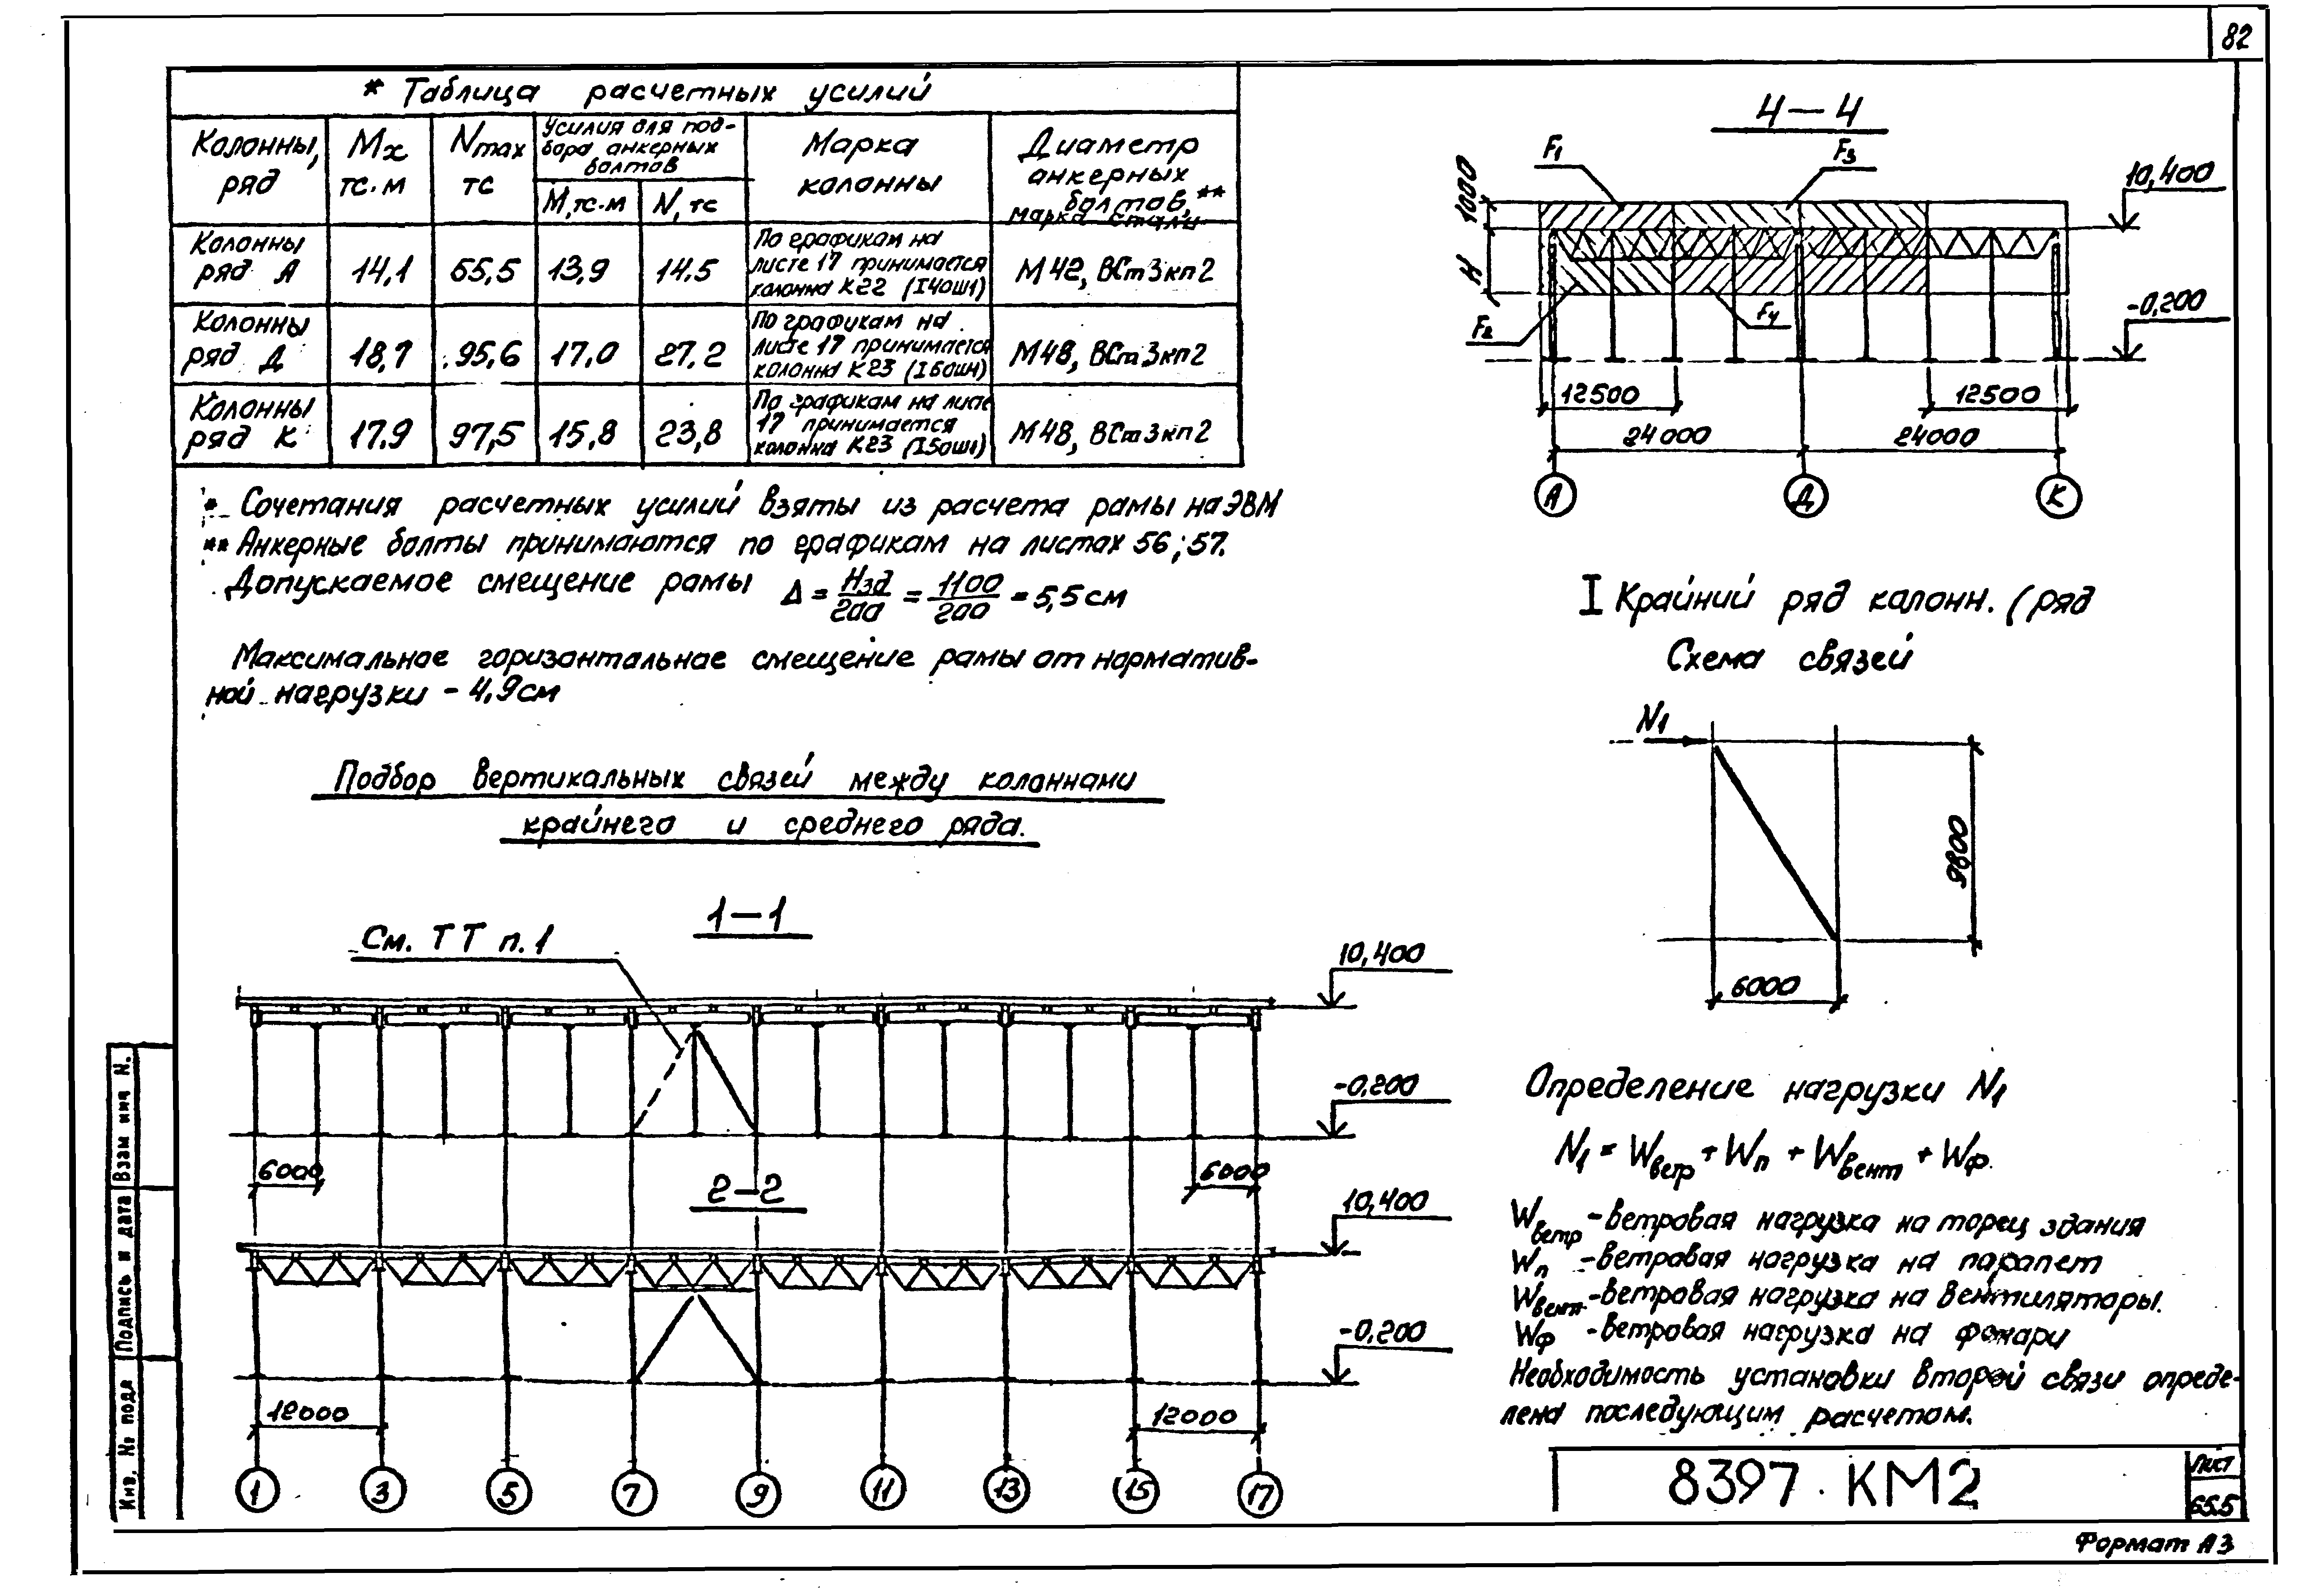 82
* Таблица расчетных усилий
Колонны, ряд
Mx тс·м
Nmax тс
Усилия для подбора анкерных болтов
М, тс·м
N, тс
Марка колонны
Диаметр анкерных болтов,** марка стали
Колонны ряд А
14,1
65,5
13,9
14,5
По графикам на
листе 17 принимается
колонна К22 (I40Ш1)
М42, ВСт3кп2
Колонны ряд Д
18,7
95,6
17,0
27,2
По графикам на
листе 17 принимается
колонна К23
М48, ВСт3кп2
Колонны ряд К
17,9
97,5
15,8
23,8
По графикам на листе
17 принимается
колонна К23 (I50Ш1)
М48, ВСт3кп2
* Сочетания расчетных усилий взяты из расчета рамы на ЭВМ
** Анкерные болты принимаются по графикам на листах 56; 57.
Допускаемое смещение рамы Δ = Hзд/200 = 1100/200 = 5,5 см
Максимальное горизонтальное смещение рамы от норматив-
ной нагрузки - 4,9 см
Подбор вертикальных связей между колоннами
крайнего и среднего ряда.
1-1
См. ТТ п.1
10,400
-0,200
6000
6000
2-2
10,400
-0,200
12000
12000
1
3
5
7
9
11
13
15
17
4-4
F1
F3
1000
H
10,400
-0,200
F2
F4
12500
12500
24000
24000
А
Д
К
I Крайний ряд колонн. (ряд
Схема связей
N1
9800
6000
Определение нагрузки N1
N1 = Wветр + Wп + Wвент + Wф.
Wветр - ветровая нагрузка на торец здания
Wп - ветровая нагрузка на парапет
Wвент - ветровая нагрузка на вентиляторы.
Wф - ветровая нагрузка на фонари
Необходимость установки второй связи опреде-
лена последующим расчетом.
8397 КМ2
Лист
65.5
Формат А3
Инв. № подл
Подпись и дата
Взам инв N.